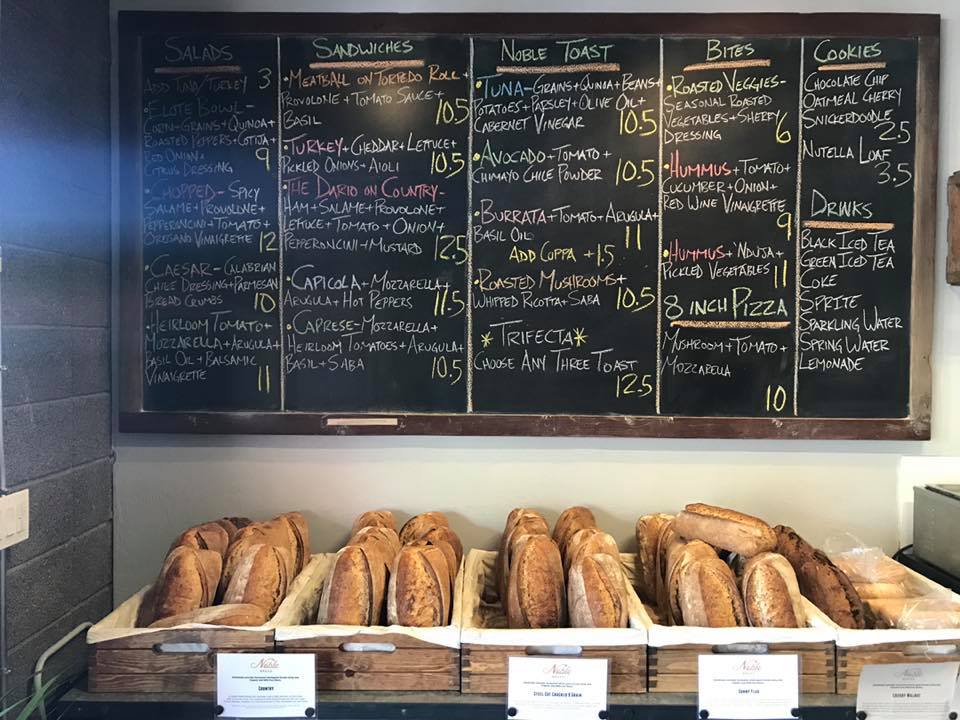 SALADS
ADD TUNA/TURKEY 3
•ELOTE BOWL-
CORN+GRAINS+QUINOA+
ROASTED PEPPERS+COTIJA+
RED ONION+
CITRUS DRESSING 9
•CHOPPED- SPICY
SALAME+PROVOLONE+
PEPPERONCINI+TOMATO+
OREGANO VINAIGRETTE 12
•CAESAR- CALABRIAN
CHILE DRESSING+PARMESAN
BREAD CRUMBS 10
•HEIRLOOM TOMATO+
MOZZARELLA+ARUGULA+
BASIL OIL+BALSAMIC
VINAIGRETTE 11
SANDWICHES
•MEATBALL ON TORPEDO ROLL+
PROVOLONE+TOMATO SAUCE+
BASIL 10.5
•TURKEY+CHEDDAR+LETTUCE+
PICKLED ONIONS+AIOLI 10.5
•THE DARIO ON COUNTRY-
HAM+SALAME+PROVOLONE+
LETTUCE+TOMATO+ONION+
PEPPERONCINI+MUSTARD 12.5
•CAPICOLA+MOZZARELLA+
ARUGULA+HOT PEPPERS 11.5
•CAPRESE-MOZZARELLA+
HEIRLOOM TOMATOES+ARUGULA+
BASIL+SABA 10.5
NOBLE TOAST
•TUNA-GRAINS+QUINOA+BEANS+
POTATOES+PARSLEY+OLIVE OIL+
CABERNET VINEGAR 10.5
•AVOCADO+TOMATO+
CHIMAYO CHILE POWDER 10.5
•BURRATA+TOMATO+ARUGULA+
BASIL OIL 11
ADD COPPA +1.5
•ROASTED MUSHROOMS+
WHIPPED RICOTTA+SABA 10.5
*TRIFECTA*
CHOOSE ANY THREE TOAST
12.5
BITES
•ROASTED VEGGIES-
SEASONAL ROASTED
VEGETABLES+SHERRY
DRESSING 6
•HUMMUS+TOMATO+
CUCUMBER+ONION+
RED WINE VINAIGRETTE
9
•HUMMUS+'NDUJA+
PICKLED VEGETABLES 11
8 INCH PIZZA
MUSHROOM+TOMATO+
MOZZARELLA
10
COOKIES
CHOCOLATE CHIP
OATMEAL CHERRY
SNICKERDOODLE
2.5
NUTELLA LOAF
3.5
DRINKS
BLACK ICED TEA
GREEN ICED TEA
COKE
SPRITE
SPARKLING WATER
SPRING WATER
LEMONADE
Noble
BREAD
COUNTRY
Noble
BREAD
Noble
BREAD
Noble
BREAD